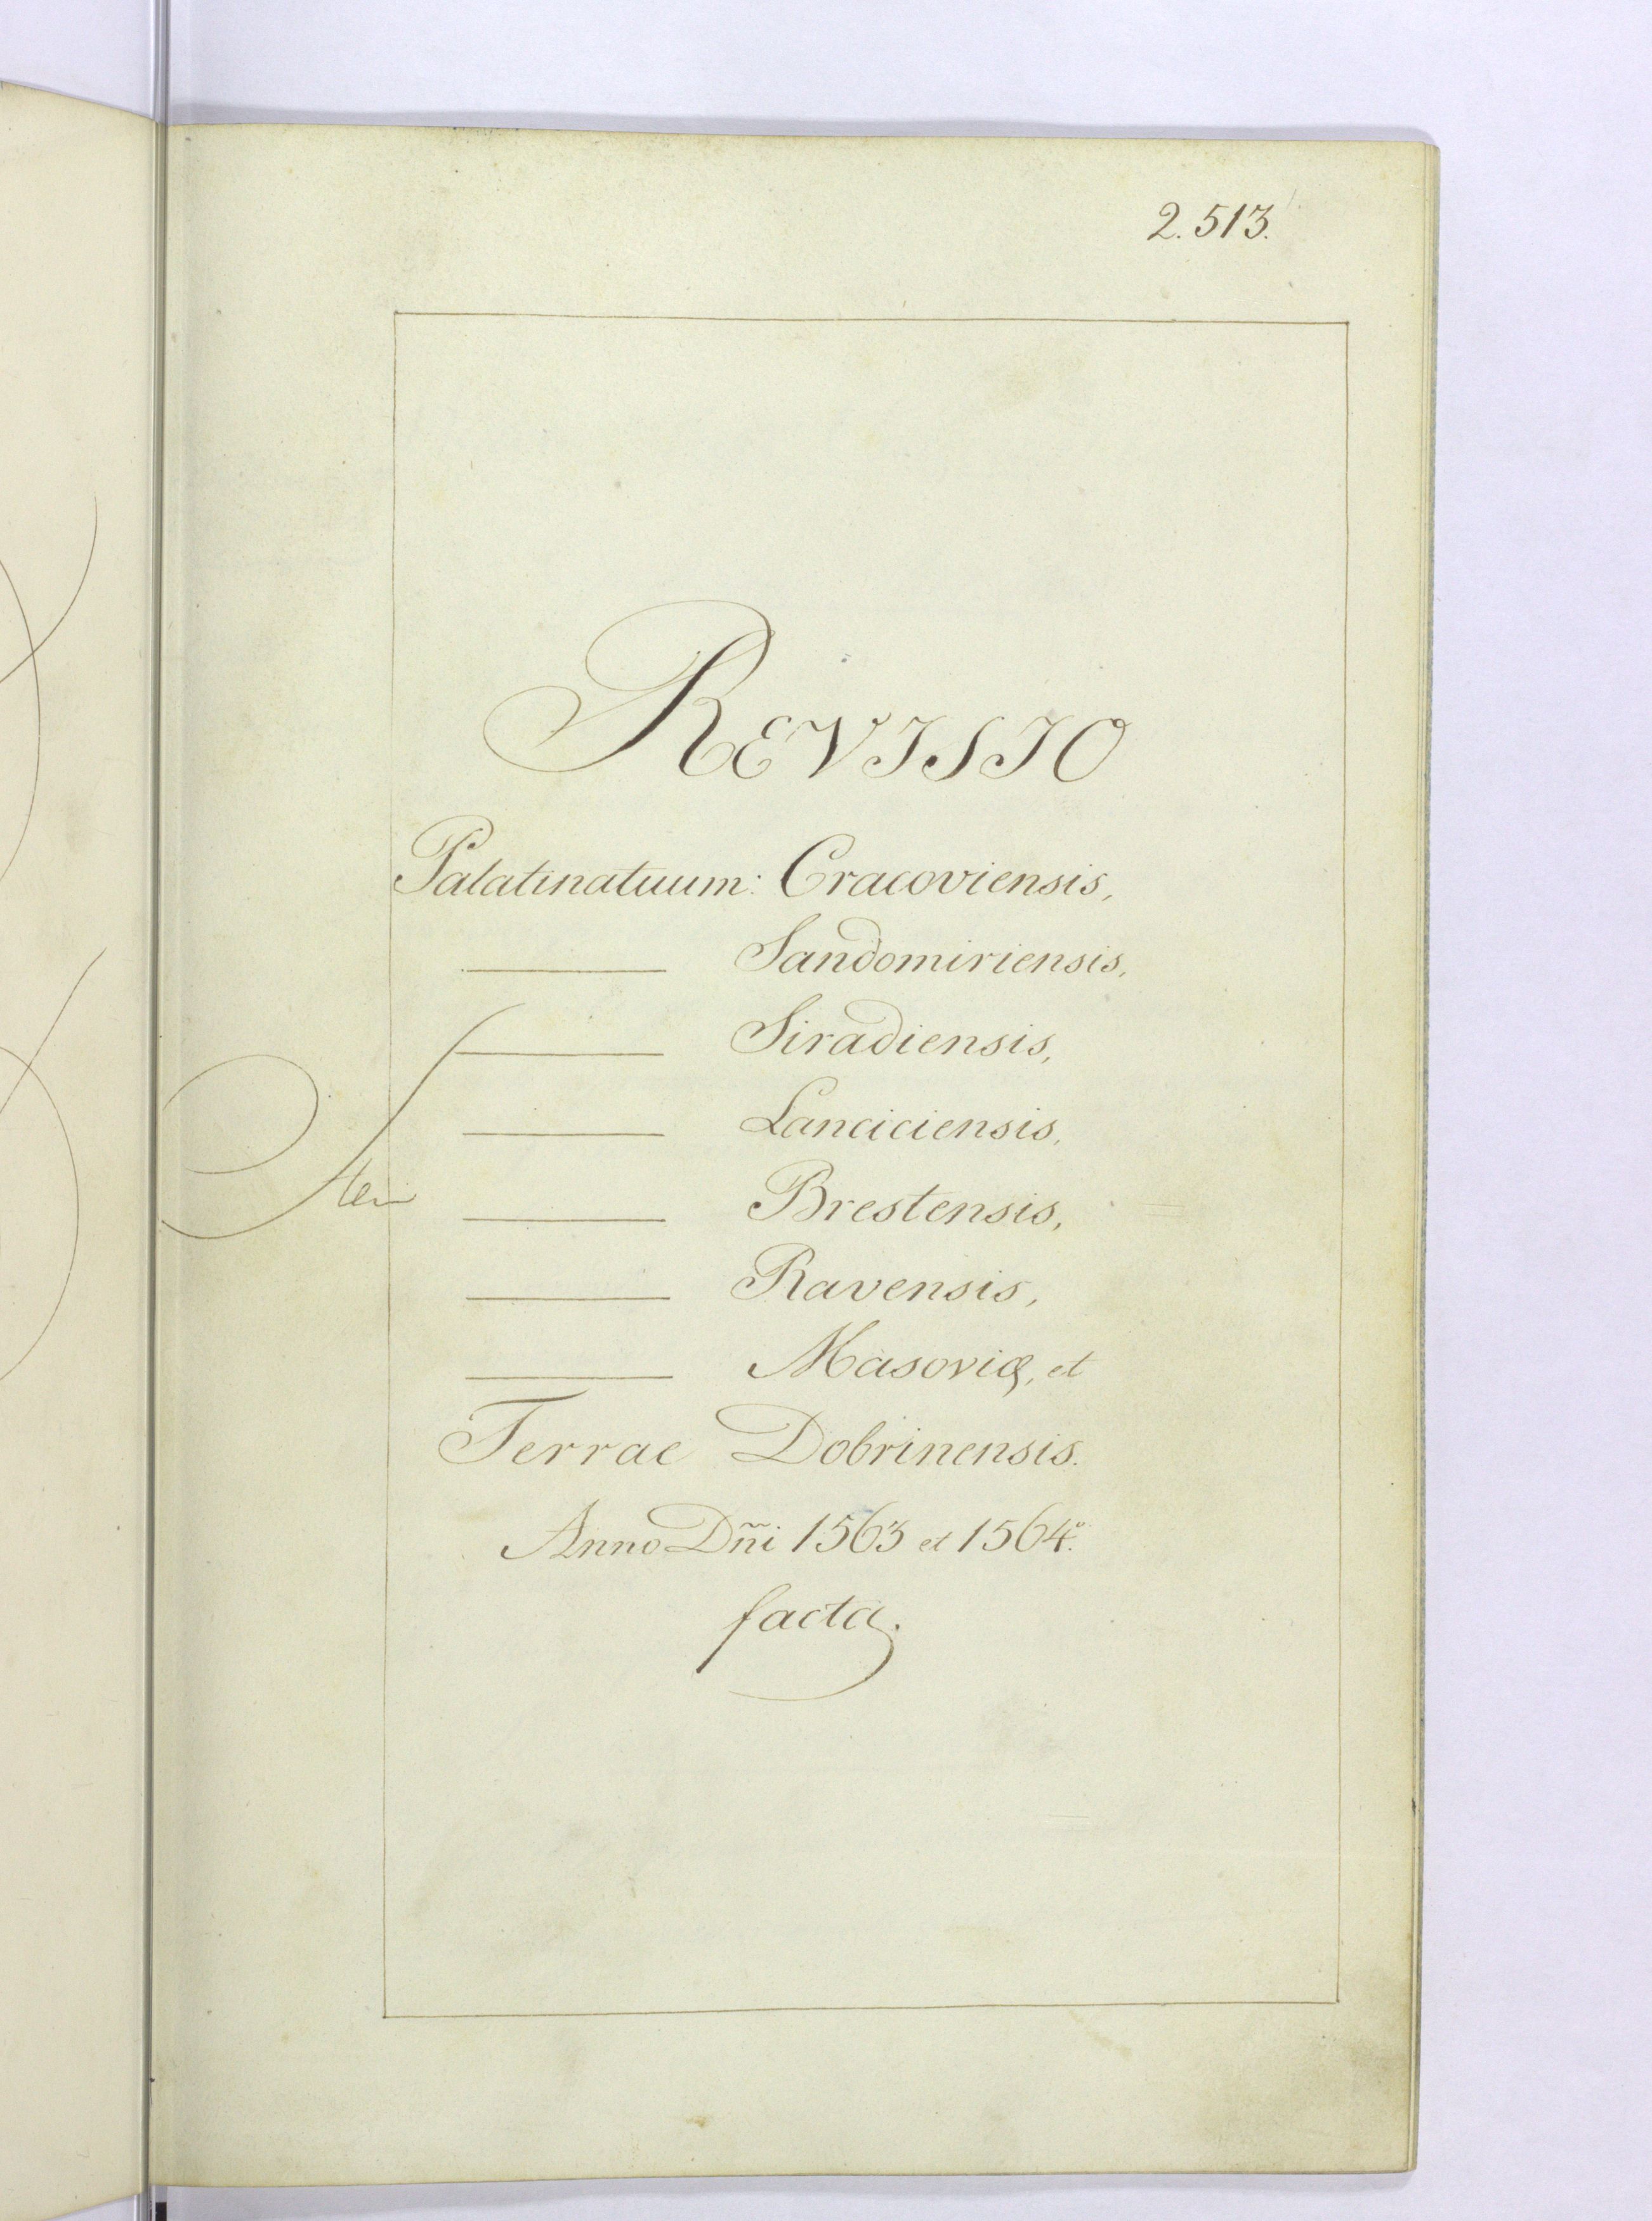 2.513.
REVISIO
Palatinatuum: Cracoviensis,
——— Sandomiriensis,
——— Siradiensis,
——— Lanciciensis,
——— Brestensis,
——— Ravensis,
——— Masoviæ, et
Terrae Dobrinensis.
Anno Dñi 1563 et 1564º.
facta.